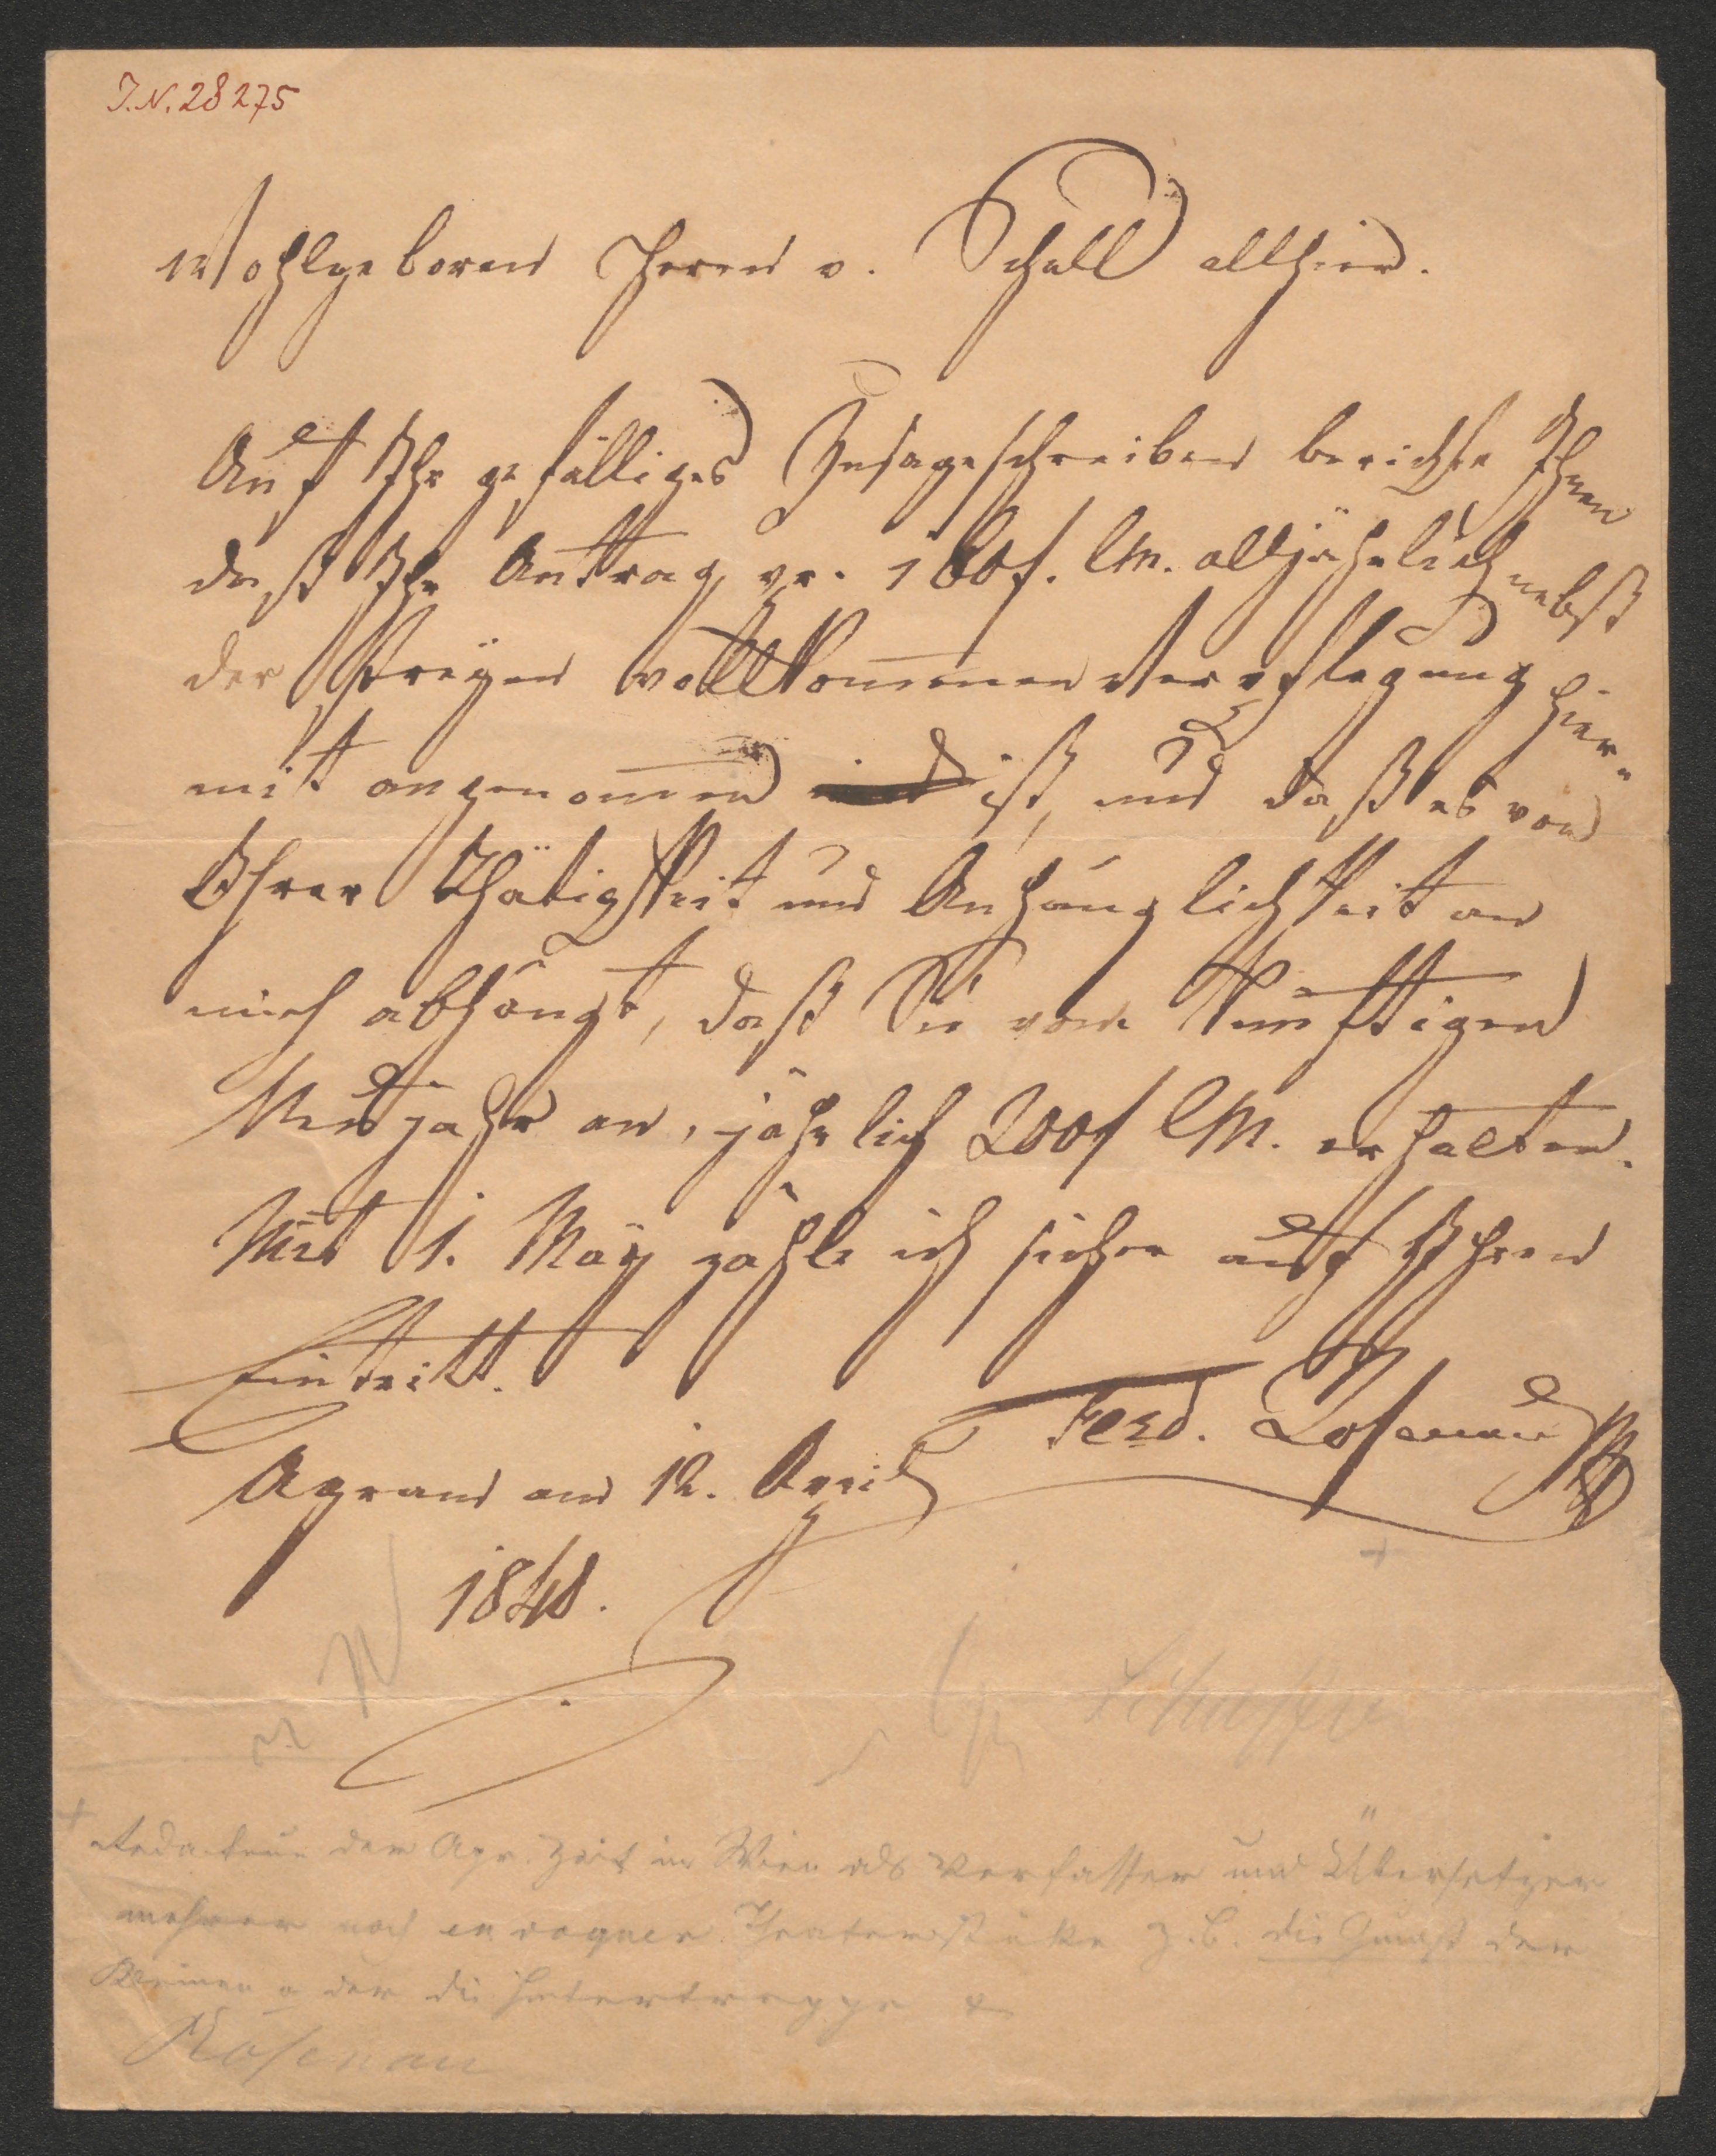 J.N. 28275
Wohlgeboren Herrn v. Schall allhier.
Auf Ihr gefälliges Zusageschreiben berichte Ihnen
daß Ihr Antrag pr. 160f. CM. alljährlich nebst
der freyen vollkommenen Verpflegung hier-
mit angenommen ist, und daß es von
Ihrer Thätigkeit und Anhänglichkeit an
mich abhängt, daß Sie vom künftigen
Neujahr an, jährlich 200f CM. erhalten.
Mit 1. May zähle ich sicher auf Ihren
Eintritt.
Ferd. Rosenau
Agram am 12. April
1848.
+
+ Redakteur der Agr. Zeit in Wien als Verfasser und Übersetzer
mehrer noch en vogue Theaterstücke z.B. die Gunst der
Kleinen oder die Hintertreppe
Rosenau